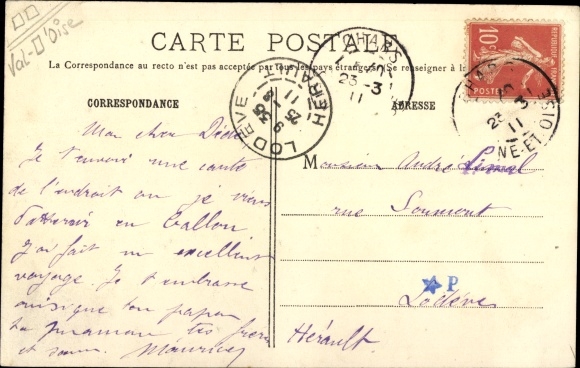 Val-D'Oise
CARTE POSTALE
La Correspondance au recto n'est pas acceptée par tous les pays étrangers. Se renseigner à la
CORRESPONDANCE
ADRESSE
Mon cher Dédé
Je t'envoie une carte
de l'endroit où je viens
d'atterrir en ballon
J'ai fait un excellent
voyage. Je t'embrasse
ainsi que ton papa
ta maman tes frères
et soeur. Maurice
Monsieur André
rue Soumont
Lodève
Hérault
P
LODEVE HERAULT
25 -3 11
23 -3 11
23 -3 11
SEINE-ET-OISE
10c
REPUBLIQUE FRANÇAISE
POSTES